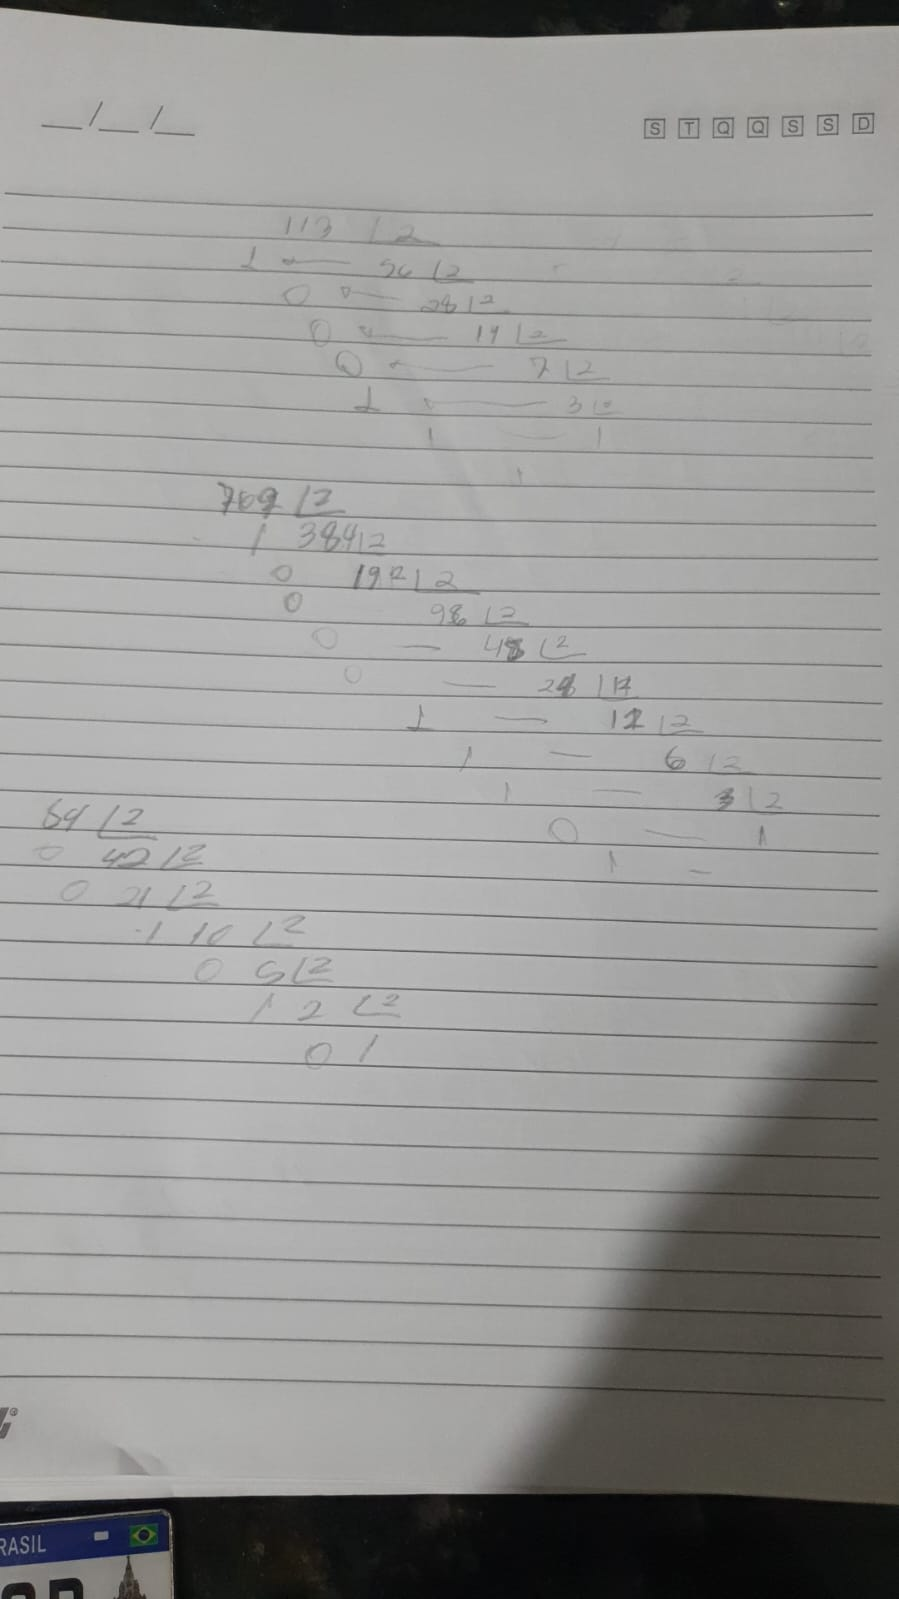 __/__/__ S T Q Q S S D
113 2
1 56 2
0 28 2
0 14 2
0 7 2
1 3 2
1 1
1
769 2
1 384 2
0 192 2
0 96 2
0 48 2
0 24
1 12 2
1 6 2
1 3 2
0 1
1
84 2
0 42 2
0 21 2
1 10 2
0 5 2
1 2 2
0 1
RASIL